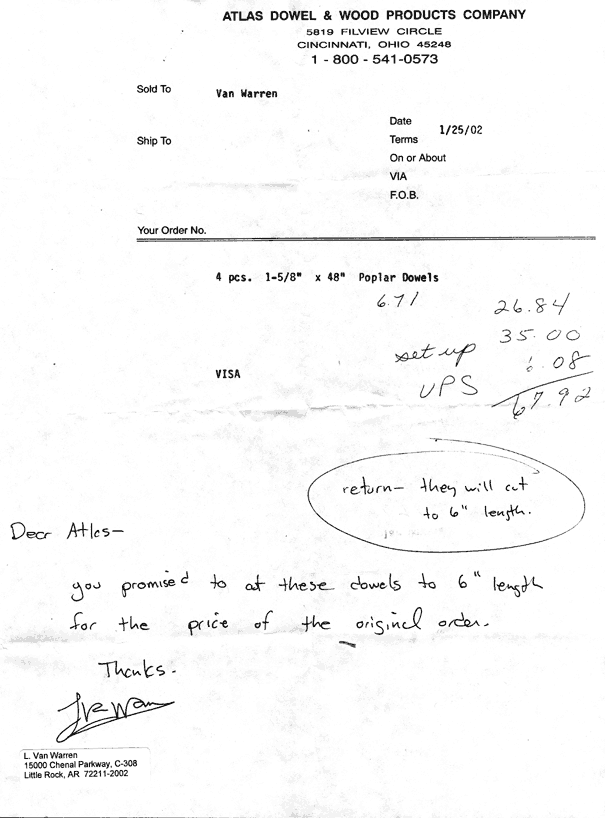 ATLAS DOWEL & WOOD PRODUCTS COMPANY
5819 FILVIEW CIRCLE
CINCINNATI, OHIO 45248
1 - 800 - 541-0573
Sold To Van Warren
Date 1/25/02
Ship To
Terms
On or About
VIA
F.O.B.
Your Order No.
4 pcs. 1-5/8" x 48" Poplar Dowels
6.71 26.84
set up 35.00
UPS 6.08
67.92
VISA
return- they will cut
to 6" length.
Dear Atlas-
you promised to cut these dowels to 6" length
for the price of the original order.
Thanks-
L. Van Warren
15000 Chenal Parkway, C-308
Little Rock, AR 72211-2002